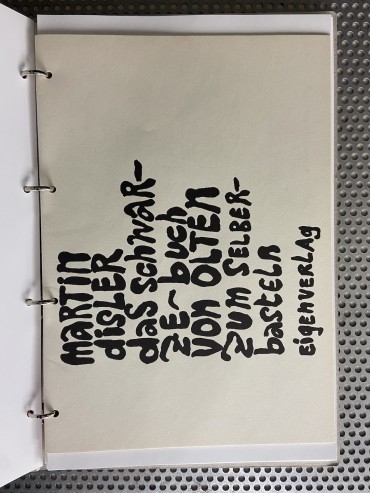 MARTIN
disLER
das schwAR-
ZE- buch
von OLTEN
ZUM SELBER-
basteln
EigENVERLAg